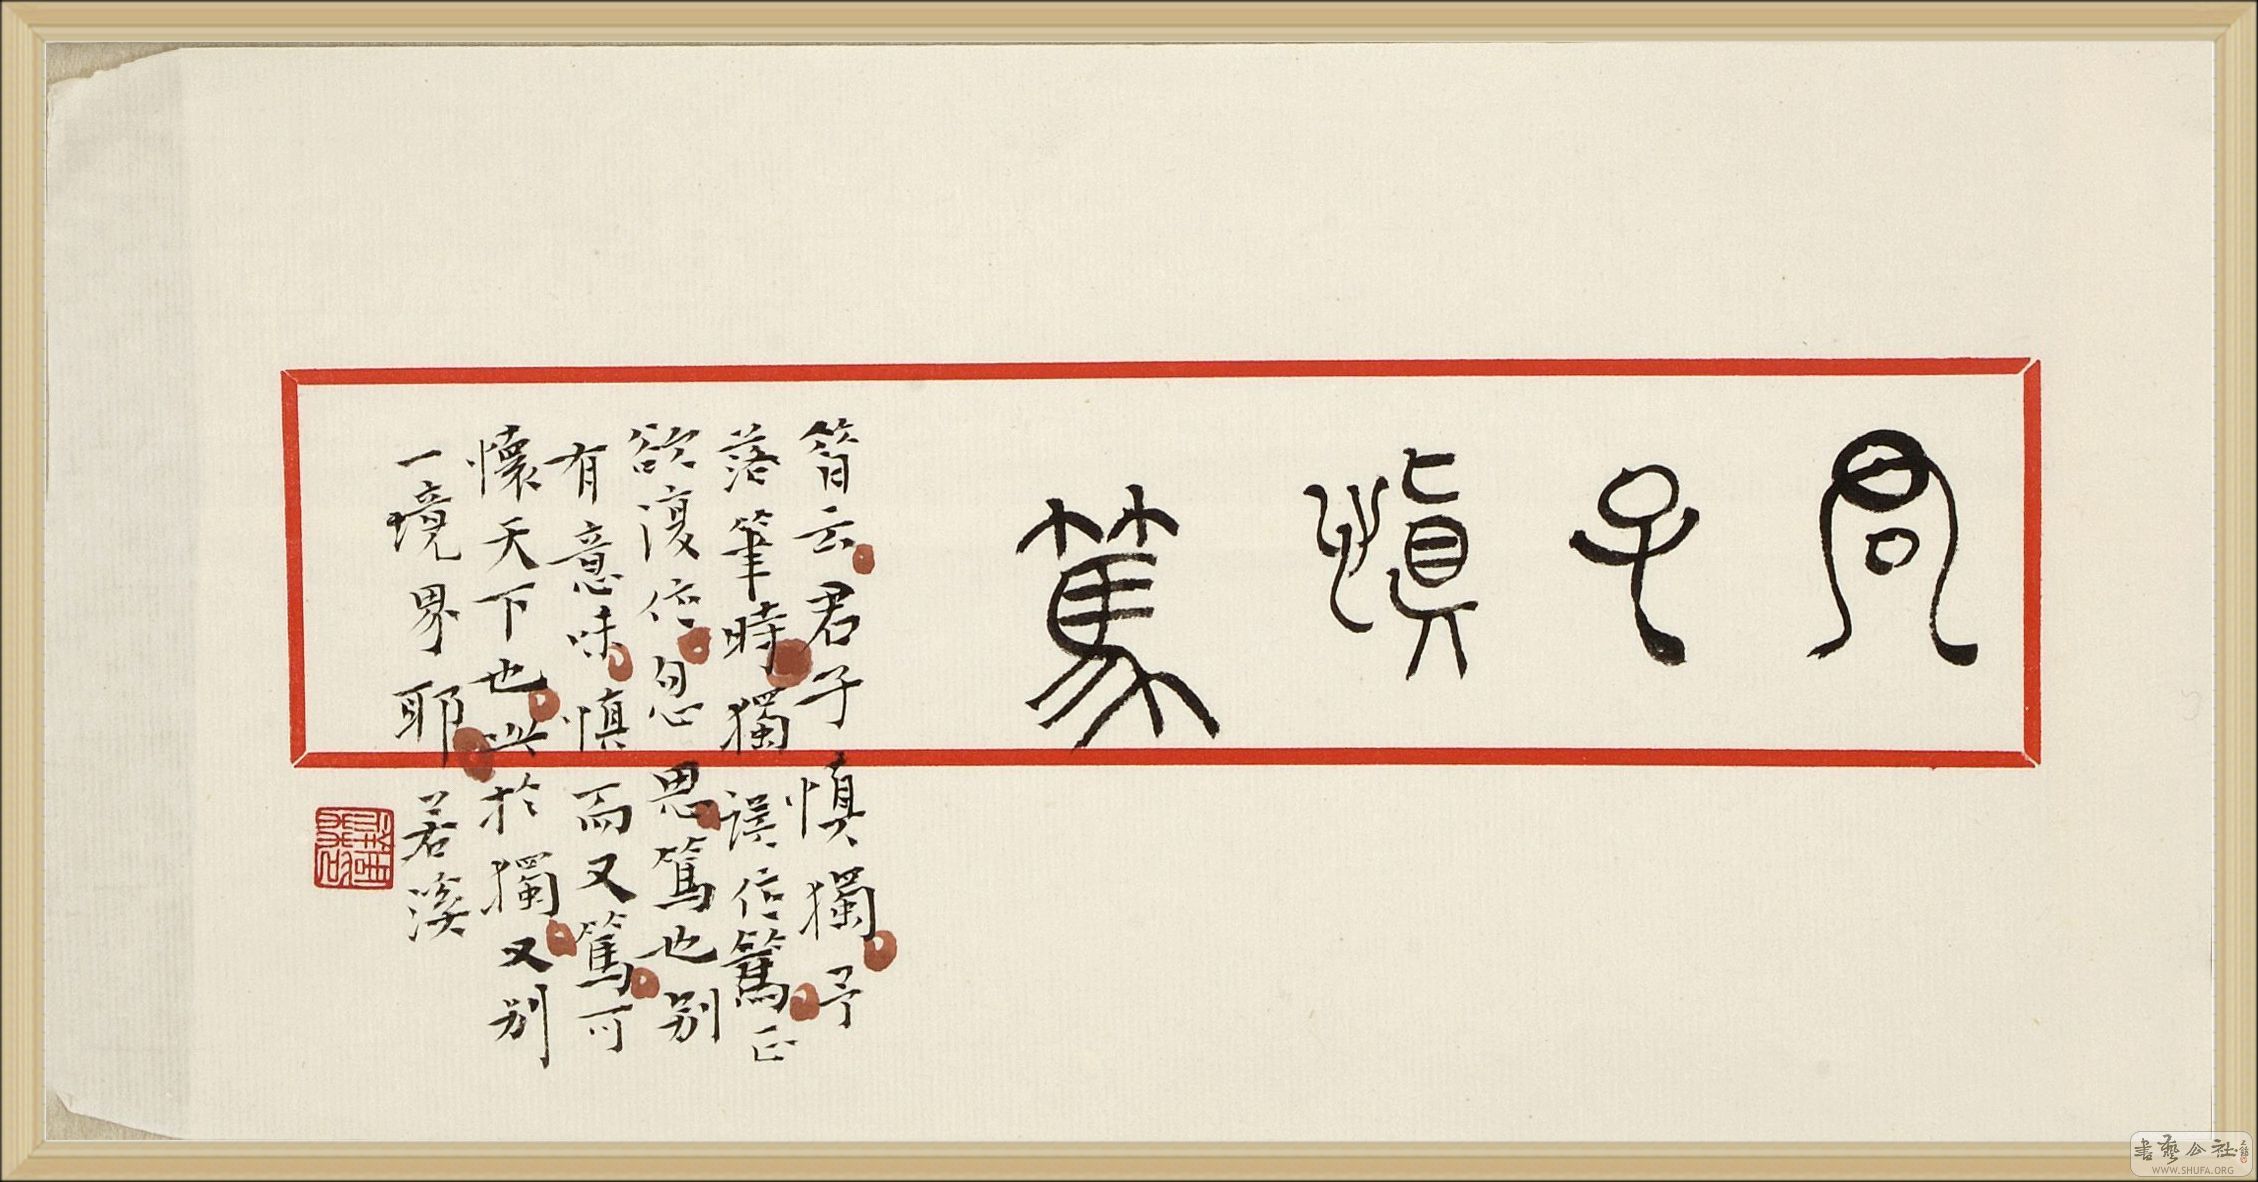 君子慎篤
昔云君子慎獨予
落筆時獨誤作篤正
欲復作忽思篤也別
有意味慎而又篤可
懷天下也與於獨又別
一境界耶 若溪
書藝公社
WWW.SHUFA.ORG